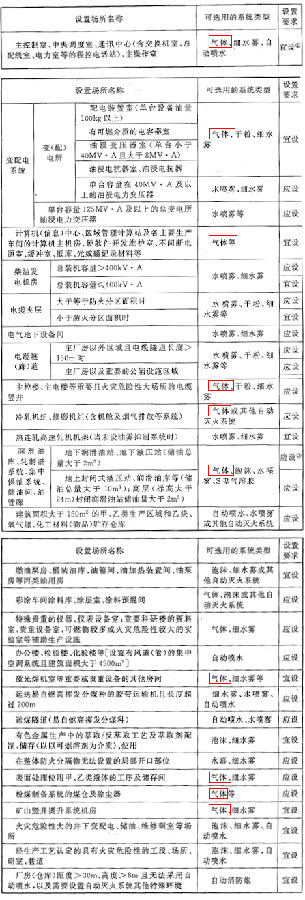 设置场所名称 可选用的系统类型 设置
要求
主控制室、中央调度室、通讯中心(含交换机室、总
配线室、电力室等的程控电话站)、主操作室
气体、细水雾、自
动喷水
宜设
设置场所名称 可选用的系统类型 设置
要求
变配电
系统
变(配)
电所
配电装置室(单台设备油量
100kg以上)
有可燃介质的电容器室
油浸变压器室(单台小于
40MV·A且大于8MV·A)
油浸电抗器室、油浸电抗器
气体、干粉、细水
雾
宜设
单台容量在40MV·A及以
上的油浸电力变压器
水喷雾、细水雾 应设
单台容量125MV·A及以上的总变电所
油浸电力变压器
水喷雾等 应设
计算机(信息)中心、区域管理计算站及各主要生产
车间的计算机主机房、硬软件开发维护室、不间断电
源室、缓冲室、纸库、光或磁记录材料等
气体等 宜设
柴油发
电机房
总装机容量>400kV·A 水喷雾、细水雾 应设
总装机容量≤400kV·A 宜设
电缆夹层
大于等于防火分区面积时 水喷雾、干粉、细
水雾等
应设
小于防火分区面积时 宜设
电气地下设备间 水喷雾、细水雾 应设
电缆隧
(廊)道
主厂房以外区域且电缆隧道长度>
150m时
水喷雾、干粉、细
水雾等
应设
主厂房以及重要的公辅设施区域 应设
主控楼、主电楼等重要且火灾危险性大场所的电缆
竖井
气体、干粉、细水
雾
应设
冷轧机组、修磨机组(含机舱及烟气排放等系统) 气体或其他自动
灭火系统
应设
热连轧高速轧机机架(当未设油雾抑制系统时) 水喷雾、细水雾 宜设
润滑油
库、轧制油
系统、集中
供油系统、
储油间、油
管廊
地下润滑油站、地下液压站(储油总
量大于2m³)
地上封闭式液压站、润滑油库等(储
油总量大于10m³);高层(标高大于
24m)封闭润滑油站储油量大于2m³)
气体、泡沫、水喷
雾、S型气溶胶
应设
应设
建筑面积大于150m²的甲、乙类生产区域和乙炔、
氧气瓶、化工材料(物品)贮存仓库
自动喷水、水喷雾
或其他自动灭火系统
应设
设置场所名称 可选用的系统类型 设置
要求
燃油泵房、桶装油库、油箱间、油加热装置间、油泵
房等丙类油用房
泡沫、细水雾或其
他自动灭火系统
宜设
彩涂车间涂料库、涂层室、涂料预混间 气体、泡沫或其他自
动灭火系统
应设
特殊贵重的仪器、仪表设备室;重要科研楼的资料
室、贵重设备室、可燃物较多或火灾危险性较大的实
验室等辅助生产设施
气体、细水雾 宜设
办公楼、检验楼、化验楼等[设置有风道(管)的集中
空调系统且建筑面积大于4500m²]
自动喷水 应设
激光焊机室等重要或贵重设备的其他房间 气体、细水雾等 宜设
运送易自燃高挥发分煤种的胶带运输机且长度超
过200m
细水雾、水喷雾、
自动喷水
应设
运煤隧道(易自燃高挥发分煤种) 自动喷水、水喷雾 应设
有色金属生产中的萃取/反萃取工艺及萃取剂配
制、储存(以可燃溶剂为介质)、使用
泡沫、细水雾 宜设
在整体防火分隔物无法设置的局部开口部位 水幕、细水雾 应设
表面处理使用甲、乙类液体的工序及储存间 气体、细水雾 应设
粉煤制备系统的煤仓及除尘器 气体等 宜设
矿山竖井提升系统机房 气体、细水雾 宜设
火灾危险性大的井下变配电、储油、维修硐室等场
所
泡沫、细水雾、自
动喷水
宜设
经生产工艺认定的具有火灾危险性的工段、场所、
硐室、巷道
泡沫、细水雾、自
动喷水
宜设
厂房(仓库)宽度>30m、高度>8m且无法采用自
动喷水,以及需要设置自动灭火系统其他特殊环境
自动消防炮 宜设